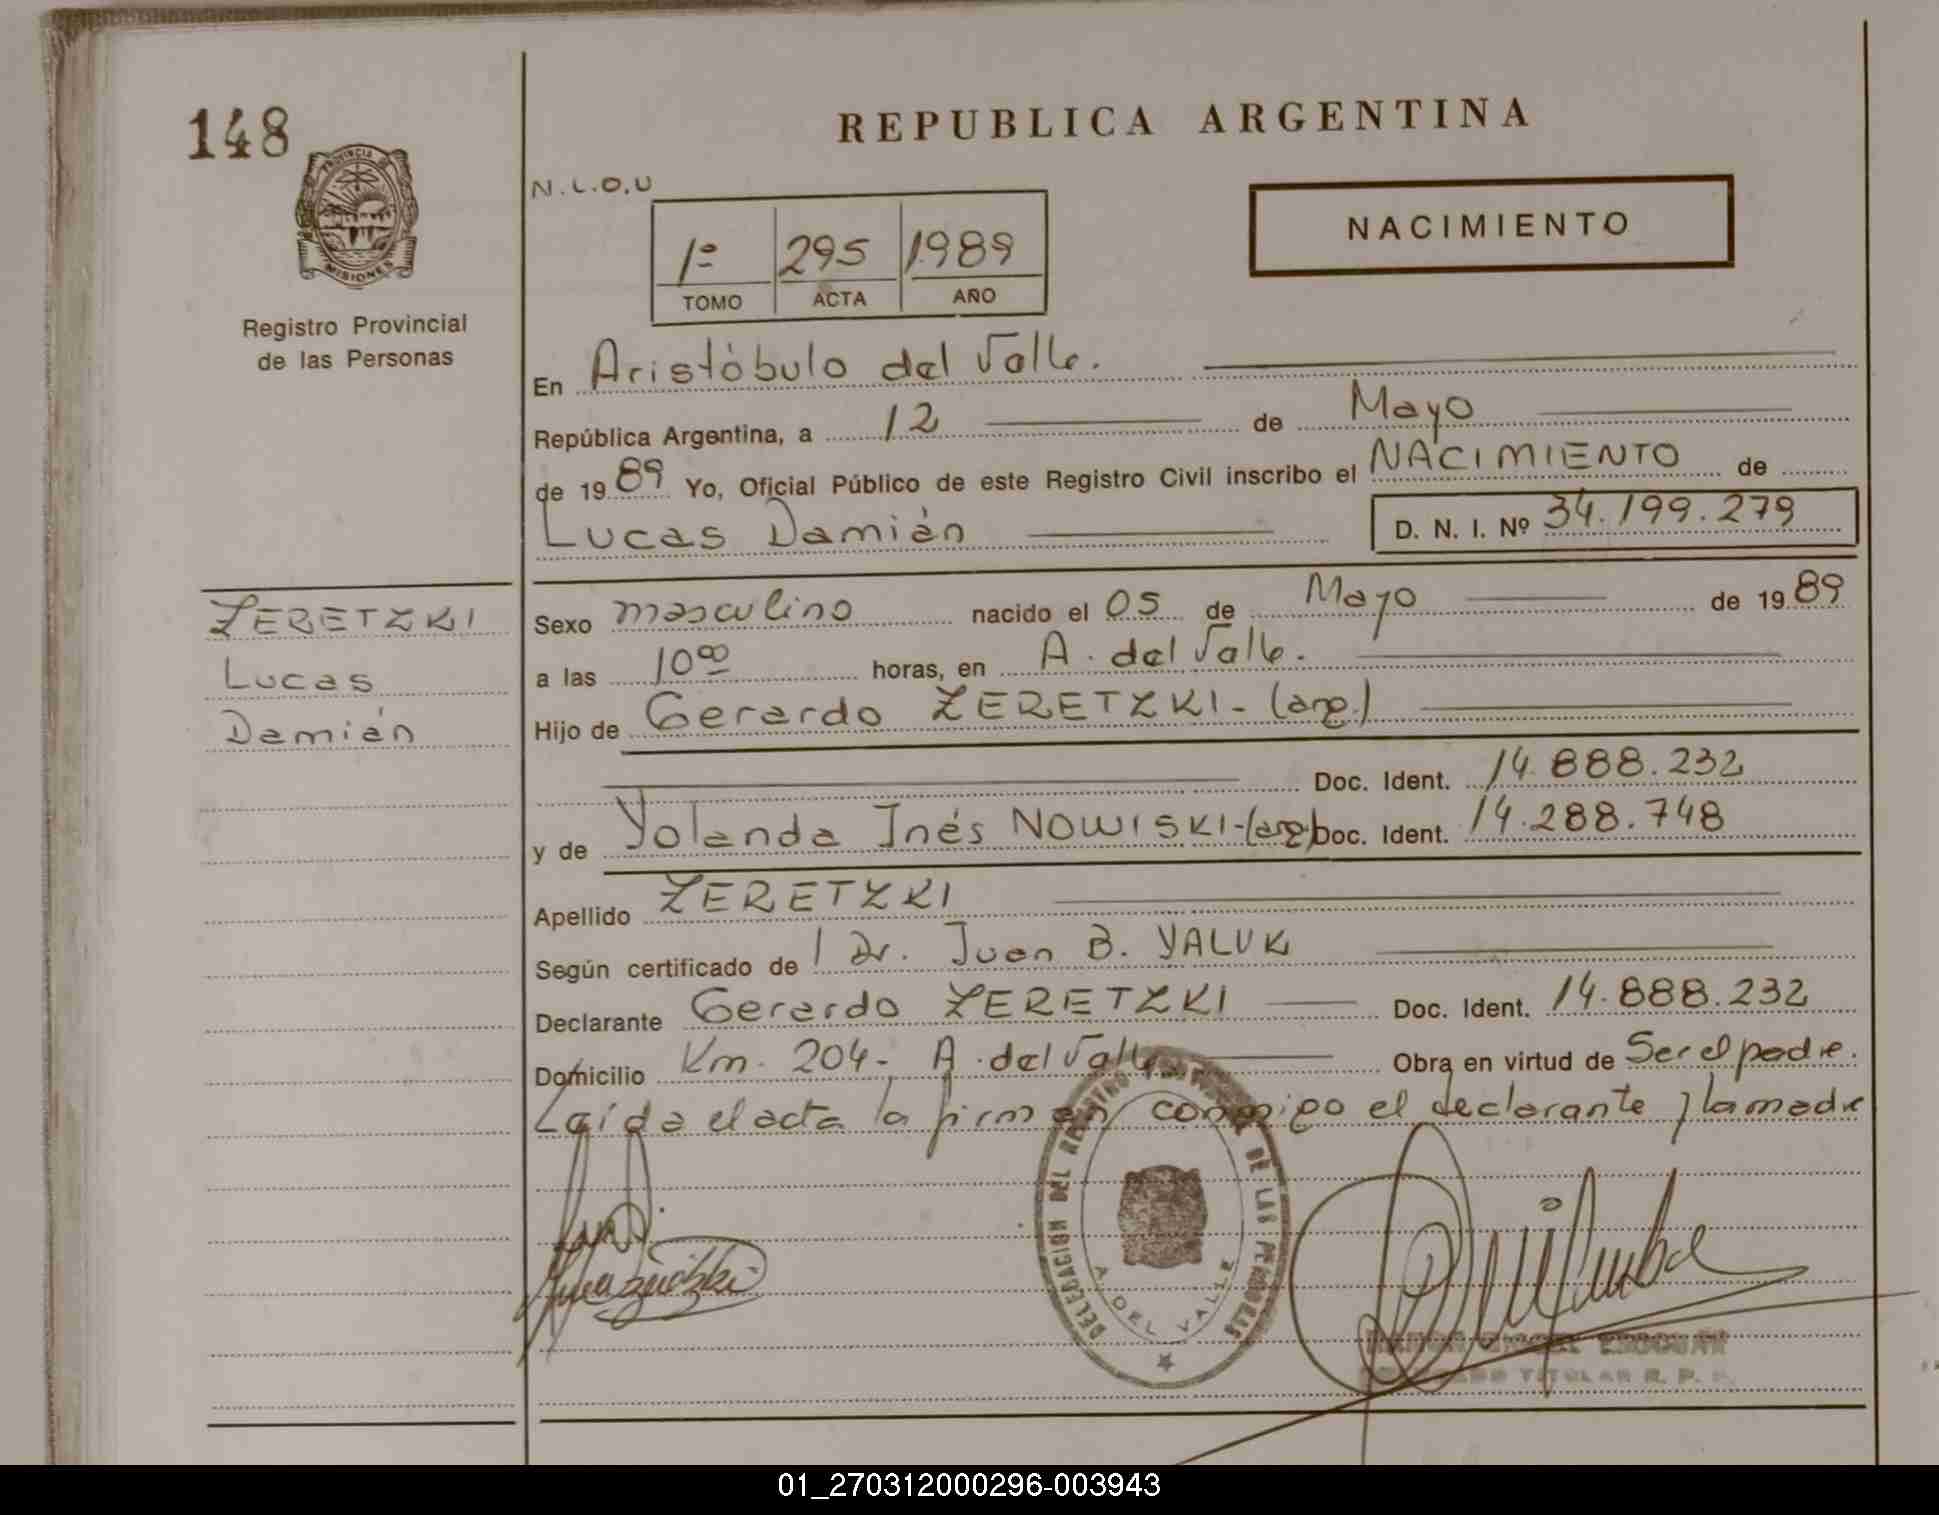 148
REPUBLICA ARGENTINA
PROVINCIA DE
MISIONES
Registro Provincial
de las Personas
N.L.O.U
1º 295 1989
TOMO ACTA AÑO
NACIMIENTO
En Aristóbulo del Valle.
República Argentina, a 12 de Mayo
de 1989 Yo, Oficial Público de este Registro Civil inscribo el NACIMIENTO de
Lucas Damián D. N. I. Nº 34.199.279
ZERETZKI
Lucas
Damián
Sexo masculino nacido el 05 de Mayo de 1989
a las 10 00 horas, en A. del Valle.
Hijo de Gerardo ZERETZKI - (arg.)
Doc. Ident. 14.888.232
y de Yolanda Inés NOWISKI - (arg) Doc. Ident. 14.288.748
Apellido ZERETZKI
Según certificado de l Dr. Juan B. YALUK
Declarante Gerardo ZERETZKI Doc. Ident. 14.888.232
Domicilio Km. 204 - A. del Valle Obra en virtud de Ser el padre.
Laída el acta la firman conmigo el declarante y la madre
DELEGACION DEL REGISTRO DE LAS PERSONAS
A. DEL VALLE
TITULAR R. P.
01_270312000296-003943